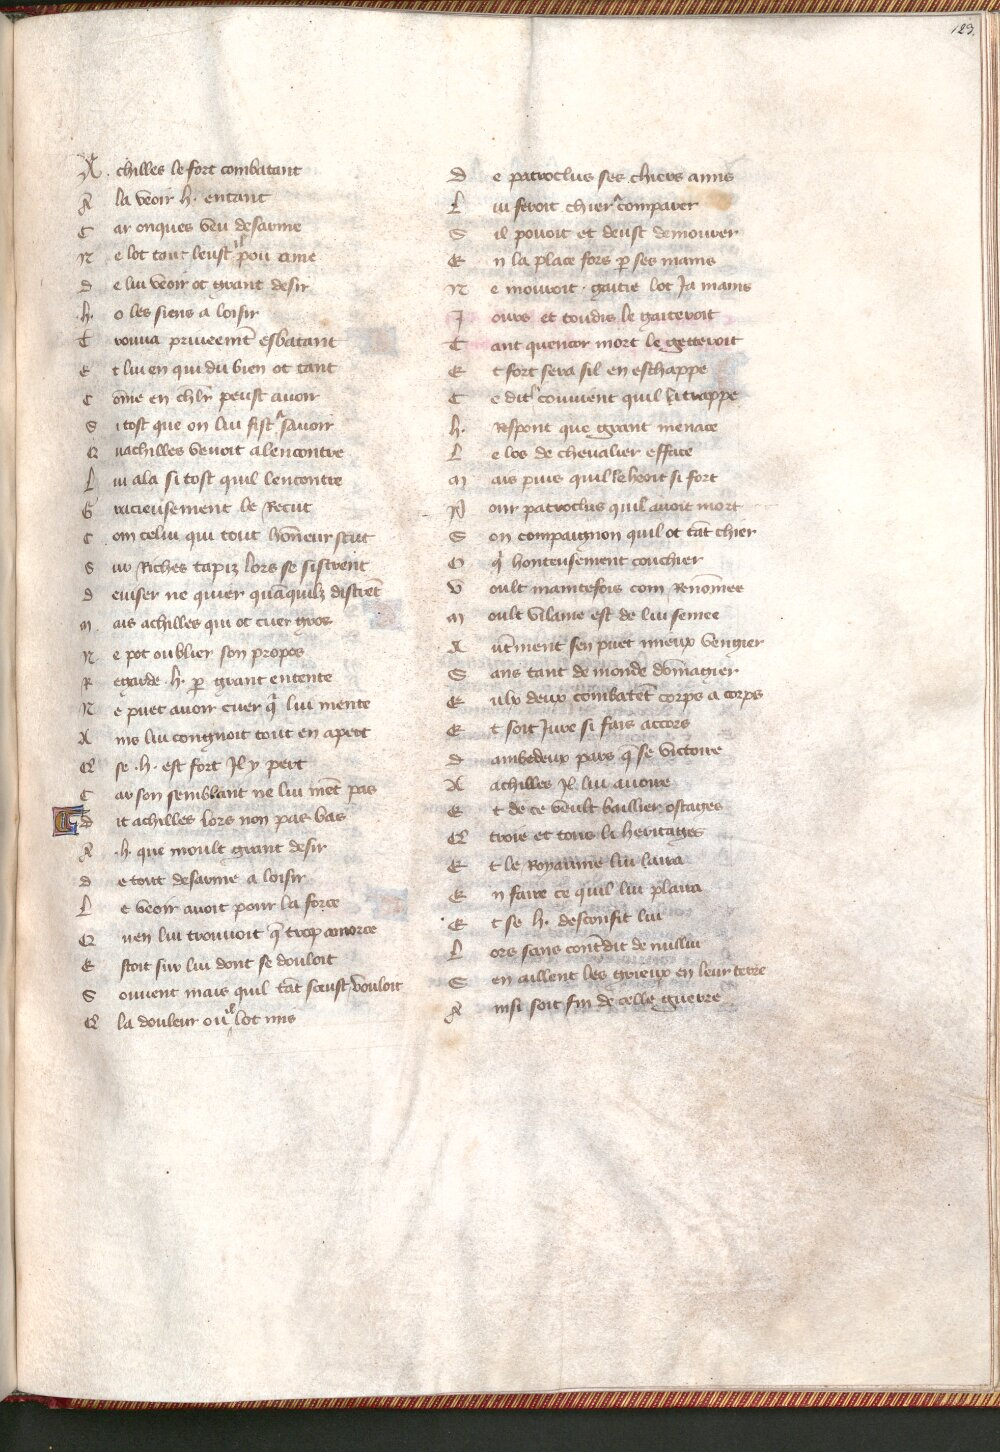 123.
A chilles le fort combatant
A la veoir .h. entant
C ar onques veu desarme
N e lot tout leust il pou ame
D e lui veoir ot grant desir
.h. o les siens a loisir
T rouua priueemēt esbatant
E t lui en qui du bien ot tant
C ōme en chlr̄ peust auoir
S i tost que on lui fist sauoir
Q uachilles venoit alencontre
L ui ala si tost quil lencontre
G racieusement le Recut
C om celui qui tout hōneur scut
S ur Riches tapiz lors se sistrent
D euiser ne quier quāquilz distrēt
M ais achilles qui ot cuer gros
N e pot oublier son propos
R egarde .h. p grant entente
N e puet auoir cuer q̄ lui mente
A ins lui congnoit tout en apert
Q se .h. est fort Jl y pert
C ar son semblant ne lui mēt pas
D it achilles lors non pas bas
A .h. que moult grant desir
D e tout desarme a loisir
L e veoir auoit pour la force
Q uen lui trouuoit q̄ trop amorce
E stoit sur lui dont se douloit
S ouuent mais quil tāt sceust vouloit
Q la douleur ou il lot mis
D e patroclus ses chiers amis
L ui feroit chier comparer
S il pouoit et deust demourer
E n la place fors p ses mains
N e mourroit . gaitie lot Ja mains
J ours et toudis le gaiteroit
T ant quencor mort le getteroit
E t fort sera sil en eschappe
C e dit couuient quil latrappe
.h. Respont que grant menace
L e los de cheualier efface
M ais puis quil le heoit si fort
P our patroclus quil auoit mort
S on compaignon quil ot tāt chier
O q̄ honteusement couchier
V oult maintefois com Renōmee
M oult vilaine est de lui semee
A utrment sen puet mieux vengier
S ans tant de monde dōmagier
E ulx deux combatēt corps a corps
E t soit Jure si fais accors
D ambedeux pars q̄ se victoire
A achilles Jl lui auoire
E t de ce veult baillier ostages
Q troie et tous le heritages
E t le Royaume lui laira
E n faire ce quil lui plaira
E t se .h. desconfit lui
L ors sans contēdit de nullui
S en aillent les grieux en leur terre
A insi soit fin de celle guerre